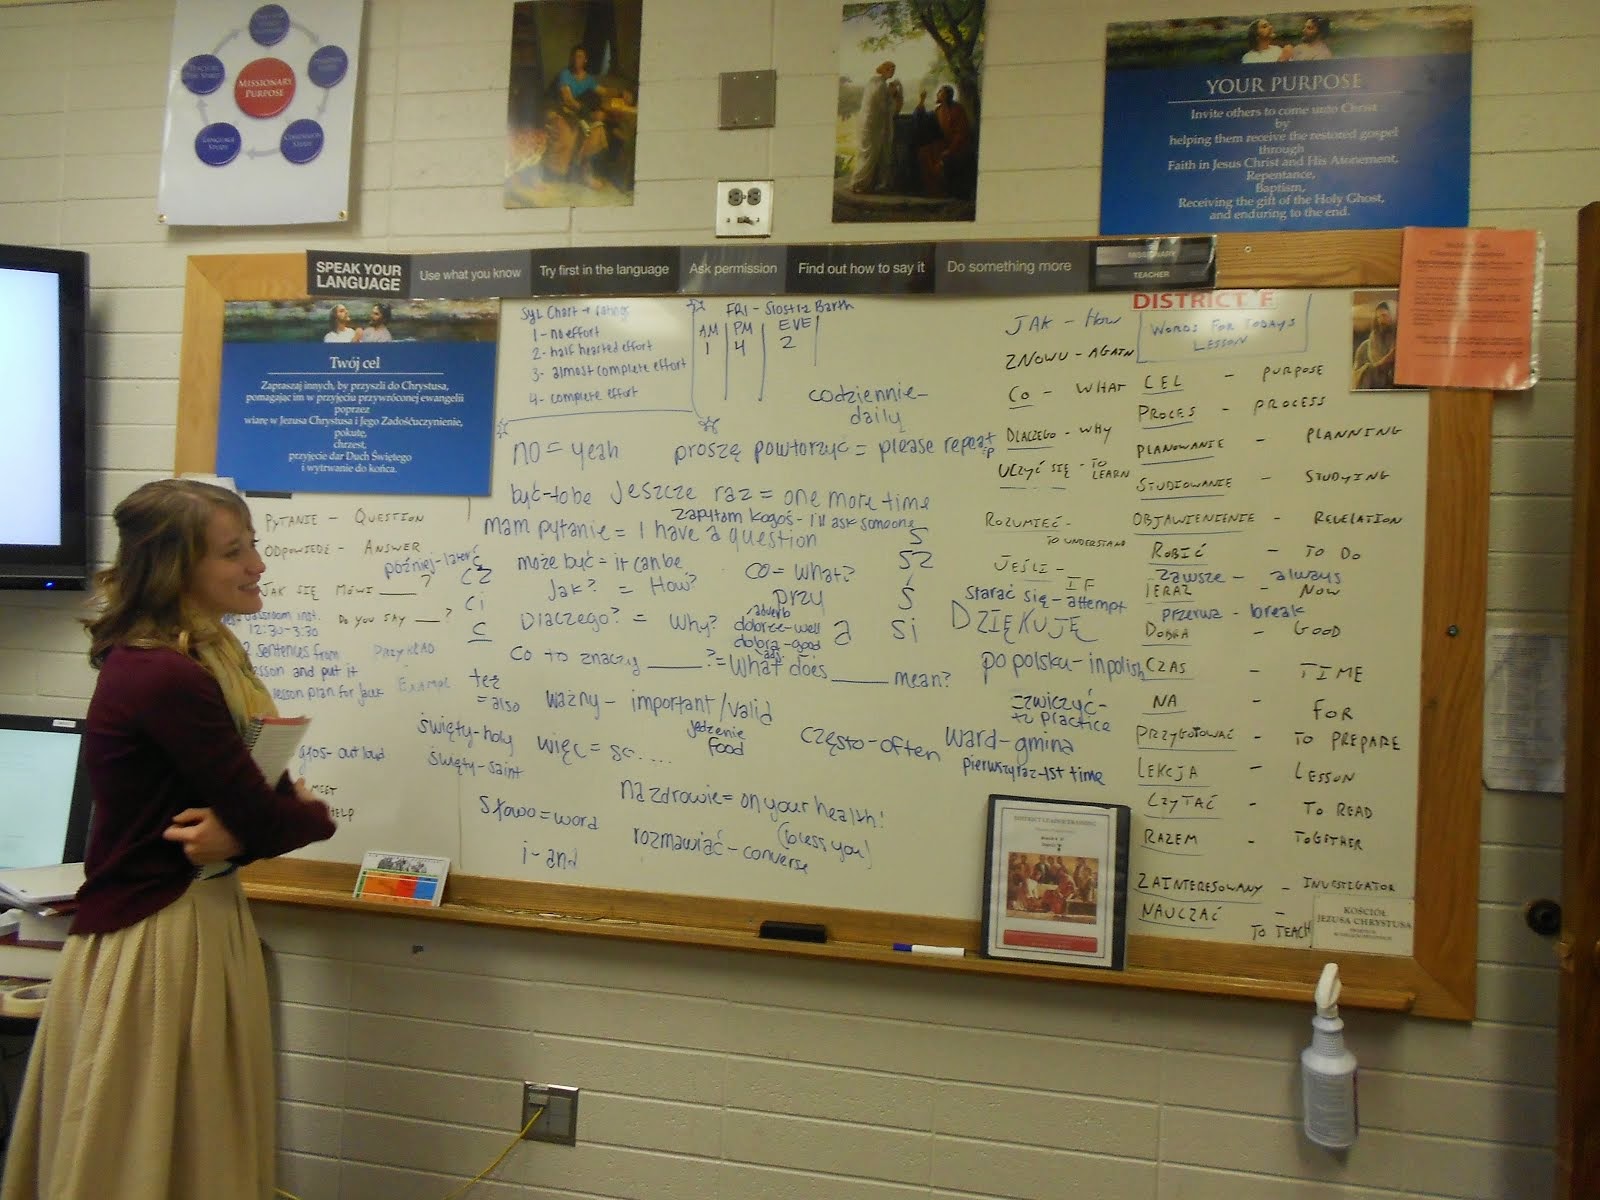 MISSIONARY
PURPOSE
LANGUAGE
STUDY
COMPANION
STUDY
YOUR PURPOSE
Invite others to come unto Christ
by
helping them receive the restored gospel
through
Faith in Jesus Christ and His Atonement,
Repentance,
Baptism,
Receiving the gift of the Holy Ghost,
and enduring to the end.
SPEAK YOUR
LANGUAGE
Use what you know
Try first in the language
Ask permission
Find out how to say it
Do something more
MISSIONARY
TEACHER
Twój cel
Zapraszaj innych, by przyszli do Chrystusa,
pomagając im w przyjęciu przywróconej ewangelii
poprzez
wiarę w Jezusa Chrystusa i Jego Zadośćuczynienie,
pokutę,
chrzest,
przyjęcie dar Duch Świętego
i wytrwanie do końca.
SYL Chart → ratings
1 - no effort
2 - half hearted effort
3 - almost complete effort
4 - complete effort
FRI - Siostra Barth
AM PM EVE
1 4 2
codziennie-
daily
no = yeah
proszę powtorzyc = please repeat
być-to be
Jeszcze raz = one more time
zapytam kogoś - I'll ask someone
mam pytanie = I have a question
może być = it can be
Jak? = How?
co = What?
przy
Dlaczego? = Why?
adverb
dobrze-well
dobra-good
adj.
Co to znaczy ____? = What does ____ mean?
ważny - important/valid
więc = so....
jedzenie
food
często-often
na zdrowie = on your health!
(bless you)
rozmawiać - converse
Słowo = word
i - and
PYTANIE - QUESTION
ODPOWIEDŹ - ANSWER
później-later
JAK SIĘ MÓWI ____?
DO YOU SAY ___?
classroom inst.
12:30-3:30
2 sentences from
lesson and put it
lesson plan for
PRZYKŁAD
EXAMPLE
głos- out loud
MEET
HELP
ć
cz
ci
c
też
= also
święty-holy
święty-saint
s
sz
ś
si
JAK - HOW
ZNOWU - AGAIN
CO - WHAT
DLACZEGO - WHY
UCZYĆ SIĘ - TO LEARN
ROZUMIEĆ -
TO UNDERSTAND
JEŚLI - IF
starać się - attempt
DZIĘKUJĘ
po polsku - in polish
ćwiczyć-
to practice
ward - gmina
pierwszy raz - 1st time
DISTRICT F
WORDS FOR TODAYS
LESSON
CEL - PURPOSE
PROCES - PROCESS
PLANOWANIE - PLANNING
STUDIOWANIE - STUDYING
OBJAWIENIENIE - REVELATION
ROBIĆ - TO DO
Zawsze - always
TERAZ - NOW
przerwa - break
DOBRA - GOOD
CZAS - TIME
NA - FOR
PRZYGOTOWAĆ - TO PREPARE
LEKCJA - LESSON
CZYTAĆ - TO READ
RAZEM - TOGETHER
ZAINTERESOWANY - INVESTIGATOR
NAUCZAĆ - TO TEACH
DISTRICT LEADER TRAINING
KOŚCIÓŁ
JEZUSA CHRYSTUSA